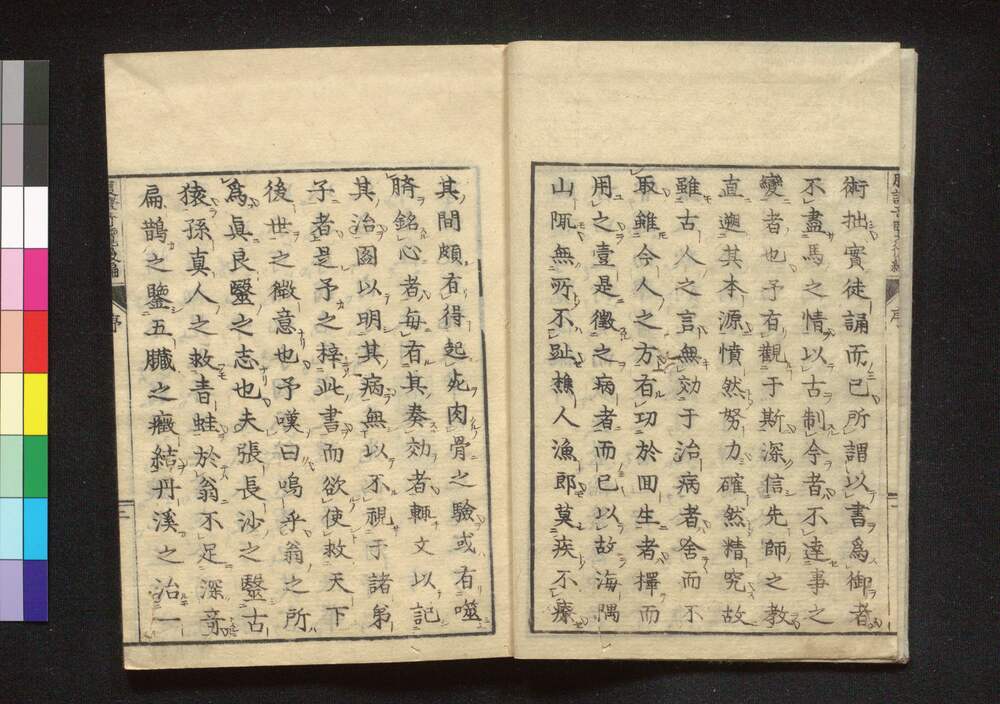 術拙實徒誦而已所謂以書爲御者
不盡馬之情以古制今者不達事之
變者也予有觀于斯深信先師之教
直遡其本源憤然努力確然精究故
雖古人之言無効于治病者舍而不
取雖今人之方有功於回生者擇而
用之壹是徵之病者而已以故海隅
山陬無所不趾樵人漁郎莫疾不療
其間頗有得起死肉骨之驗或有噬
臍銘心者每有其奏効者輙文以記
其治圖以明其病無以不視于諸弟
子者是予之梓此書而欲使救天下
後世之微意也予嘆曰嗚乎翁之所
爲眞良毉之志也夫張長沙之毉古
猿孫真人之救青蛙於翁不足深竒
扁鵲之鑒五臟之癥結丹溪之治一
序
序